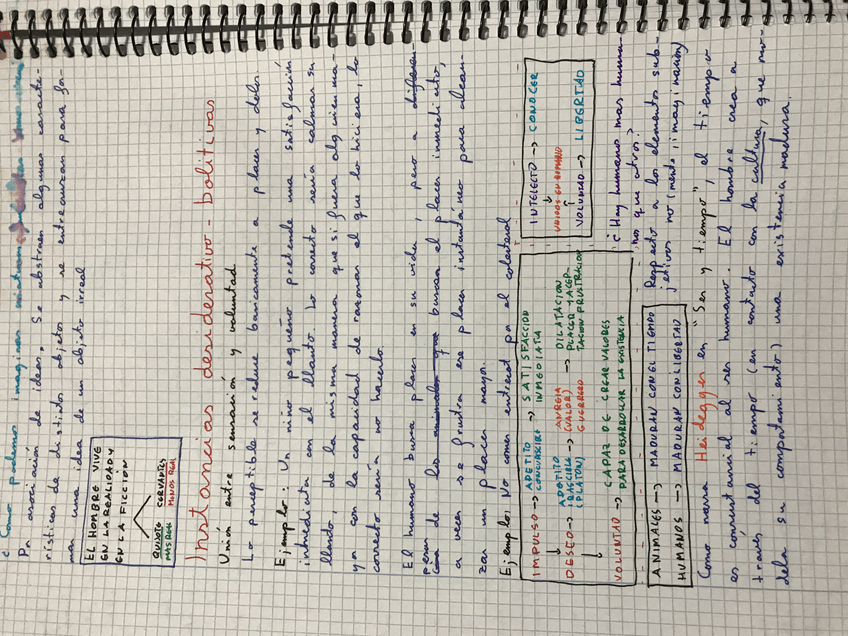 ¿Como podemos imaginar
Por asociación de ideas. Se abstraen algunas caracte-
rísticas de distintos objetos y se entrecruzan para for-
mar una idea de un objeto irreal
EL HOMBRE VIVE
EN LA REALIDAD Y
EN LA FICCION
QUIJOTE CERVANTES
MAS REAL MENOS REAL
Instancias desiderativo - bolitivas
Unión entre sensación y voluntad
Lo perceptible se reduce basicamente a placer y dolor.
Ejemplo: Un niño pequeño pretende una satisfacción
inmediata con el llanto. Lo correcto sería calmar su
llanto, de la misma manera que si fuera alguien ma-
yor con la capacidad de razonar el que lo hiciera, lo
correcto sería no hacerlo.
El humano busca placer en su vida, pero a diferen-
cia de los animales que buscan el placer inmediato,
a veces se frustra ese placer instantáneo para alcan-
zar un placer mayor.
Ejemplo: No comer entrecot por el colesterol
IMPULSO → APETITO → SATISFACCION
CONCUASCIBLE INMEDIATA
DESEO → APETITO ANREIA → DILATACION
IRASCIBLE (VALOR) PLACER Y ACEP-
(PLATON) GUERRERO TACION FRUSTRACION
VOLUNTAD → CAPAZ DE CREAR VALORES
PARA DESARROLLAR LA EXISTENCIA
INTELECTO → CONOCER
UNIDOS EN HUMANO
VOLUNTAD → LIBERTAD
¿Hay humanos mas huma-
nos que otros?
ANIMALES → MADURAN CON EL TIEMPO
HUMANOS → MADURAN CON LIBERTAD
Respecto a los elementos sub-
jetivos no (mente, imaginación)
Como narra Heidegger en "Ser y tiempo", el tiempo
es consustancial al ser humano. El hombre crea a
través del tiempo (en contacto con la cultura, que mo-
dela su comportamiento) una existencia madura.